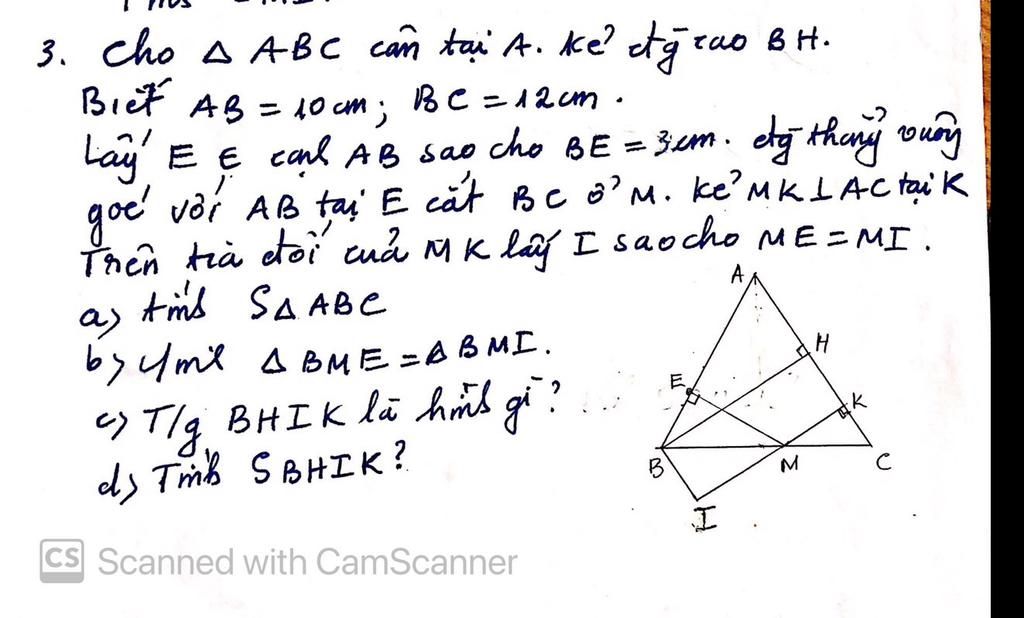 3. Cho △ ABC cân tại A. Kẻ đg̃ cao BH.
Biết AB = 10 cm; BC = 12 cm.
Lấy E ∈ cạnh AB sao cho BE = 3 cm. đg̃ thẳng vuông
góc với AB tại E cắt BC ở M. Kẻ MK ⊥ AC tại K
Trên tia đối của MK lấy I sao cho ME = MI.
a) tính S△ ABC
b) c/m △ BME = △ BMI.
c) T/g BHIK là hình gì?
d) Tính SBHIK?
A
H
E
K
B
M
C
I
CS Scanned with CamScanner